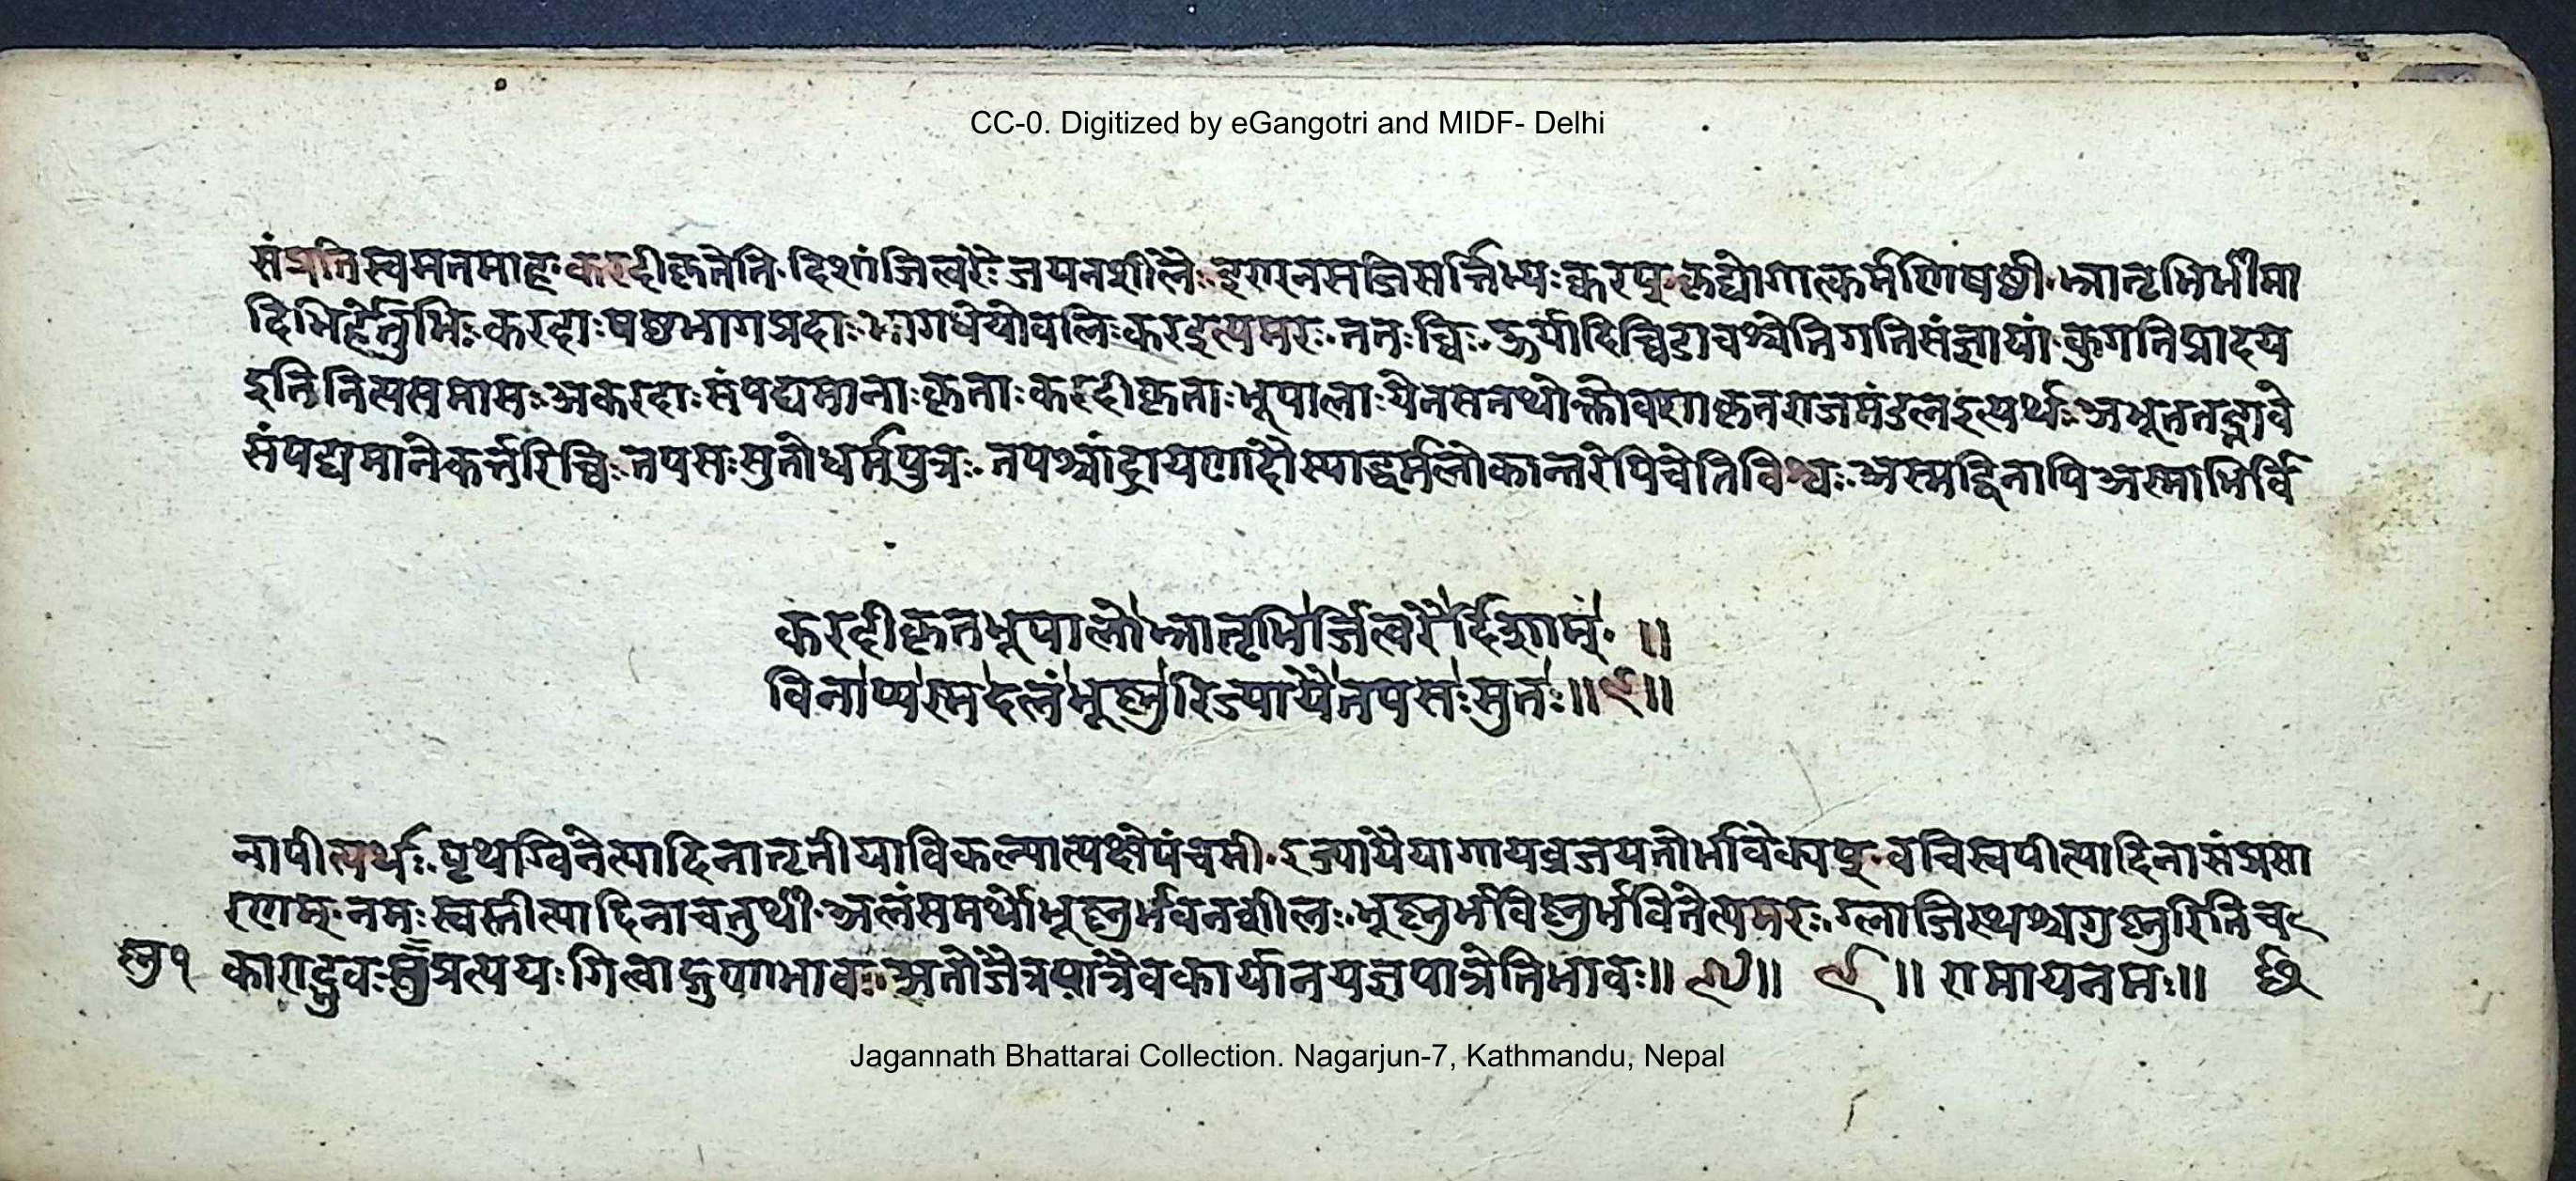 CC-0. Digitized by eGangotri and MIDF- Delhi
संप्रतिस्वमतमाह करदीकृतेति दिशांजित्वरैः जयनशीलैः इण्नसजिसर्त्तिभ्यःक्वरप् कृद्योगात्कर्मणिषष्ठी भ्रातृभिर्भीमा
दिभिर्हेतुभिः करदाःषष्ठभागप्रदाः भागधेयोवलिःकरइत्यमरः ततःच्विः ऊर्यादिच्विडाचश्चेतिगतिसंज्ञायां कुगतिप्रादय
इतिनित्यसमासः अकरदाःसंपद्यमानाःकृताःकरदीकृताःभूपालाःयेनसतथोक्तोवशाकृतराजमंडलइत्यर्थः अभूततद्भावे
संपद्यमानेकर्त्तरिच्विः तपसःसुतोधर्मपुत्रः तपश्चांद्रायणादौस्याद्धर्मलोकान्तरेपिचेतिविश्वः अस्मद्विनापिअस्माभिर्वि
करदीकृतभूपालोभ्रातृभिर्जित्वरैर्दिशाम् ॥
विनाप्यस्मदलंभूष्णुरिज्यायैतपसःसुतः॥९॥
नापीत्यर्थः पृथग्विनेत्यादिनातृतीयाविकल्पात्पक्षेपंचमी इज्यायैयागायव्रजयजोर्भावेक्यप् वचिस्वपीत्यादिनासंप्रसा
रणम् नमःस्वस्तीत्यादिनाचतुर्थी अलंसमर्थोभूष्णुर्भवनशीलः भूष्णुर्भविष्णुर्भवितेत्यमरः ग्लाजिस्थश्चग्स्नुरितिच
ष्णु१ काराद्भुवः प्रत्ययः गित्वाद्गुणाभावः अतोजैत्रयात्रैवकार्यानयज्ञपात्रेतिभावः॥ ९॥ ॥ रामायनमः॥
Jagannath Bhattarai Collection. Nagarjun-7, Kathmandu, Nepal